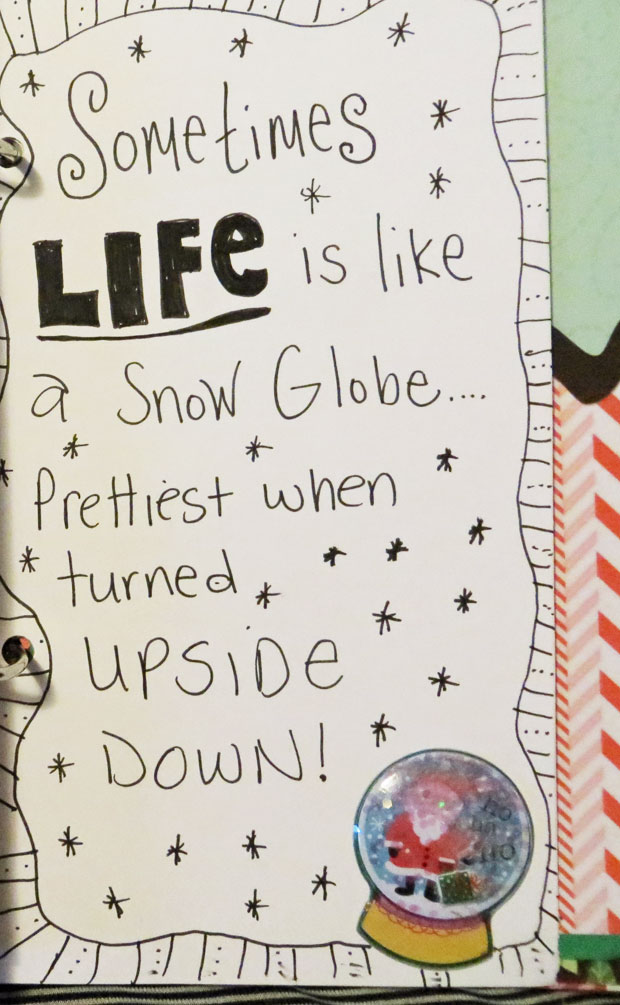 Sometimes
LIFe is like
a Snow Globe....
Prettiest when
turned
UPSiDe
DOWN!
HO
HO
HO